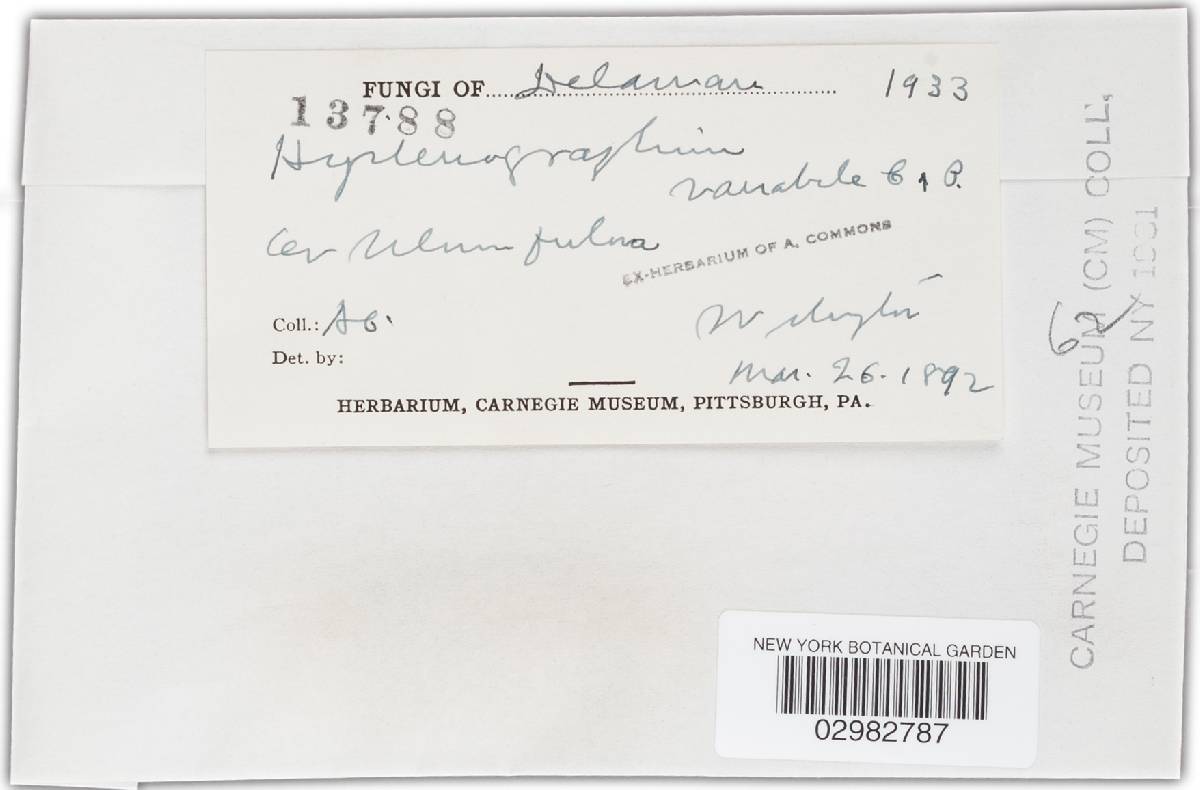 FUNGI OF Delaware 1933
13788
Hysterographium
variabile C & P.
on Ulmus fulva
EX-HERBARIUM OF A. COMMONS
Coll.: AC.
Wilmington
Det. by:
Mar. 26. 1892
HERBARIUM, CARNEGIE MUSEUM, PITTSBURGH, PA.
CARNEGIE MUSEUM (CM) COLL.
DEPOSITED NY 1981
NEW YORK BOTANICAL GARDEN
02982787